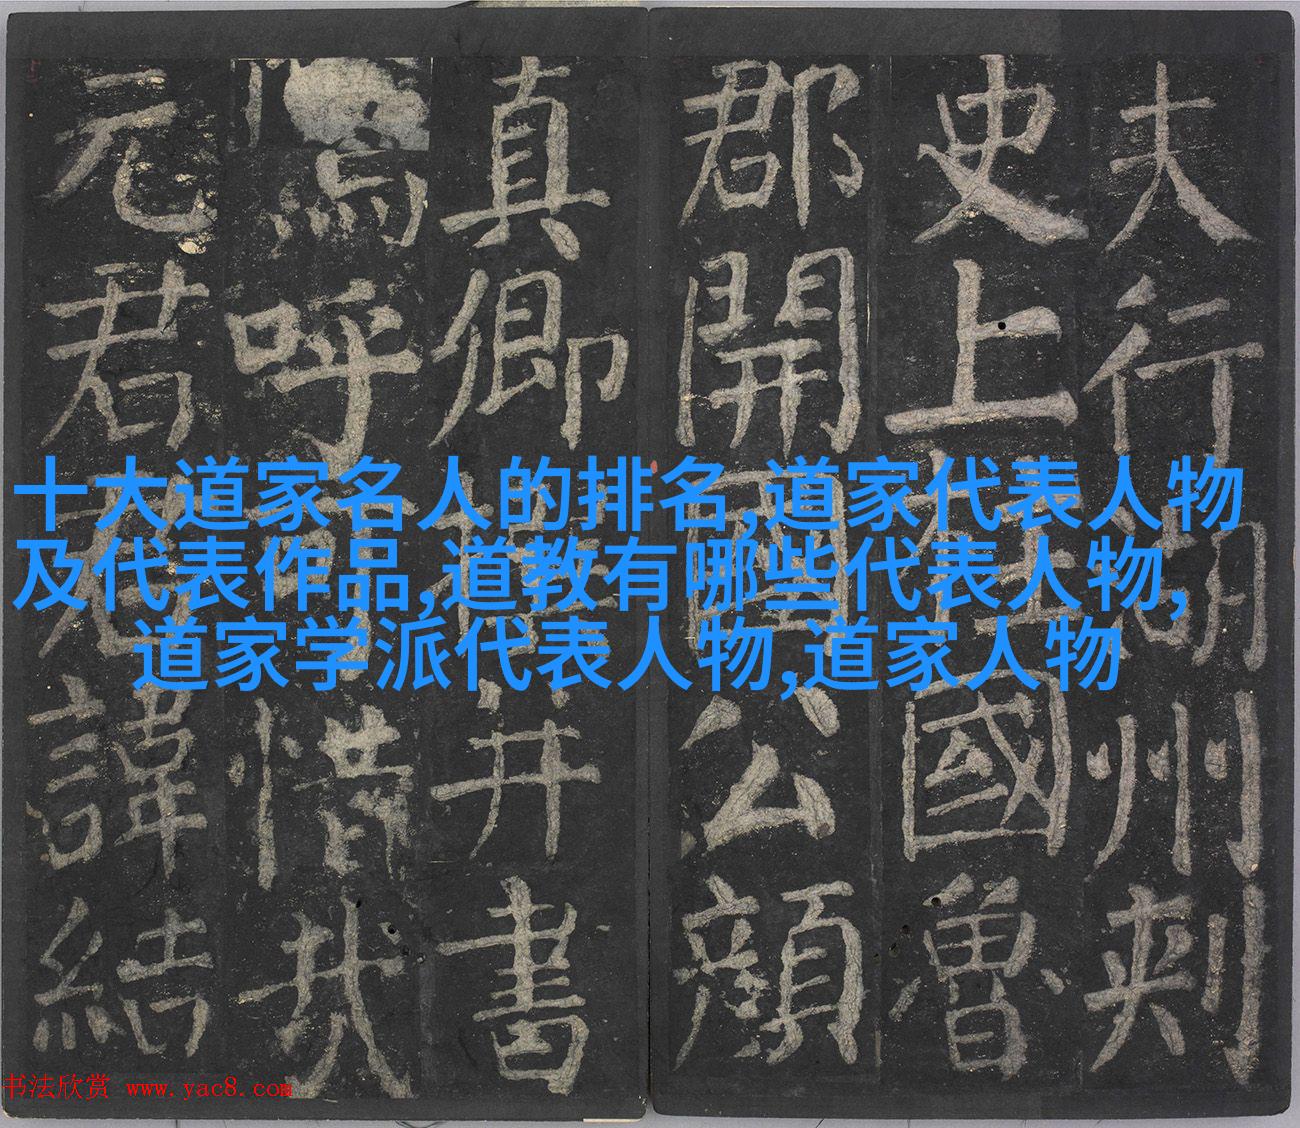 夫行湖州刾
史上柱國魯
郡開國公顔
真卿撰并書
嗚呼可惜哉
元君君諱結
十大道家名人的排名,道家代表人物
及代表作品,道教有哪些代表人物,
道家学派代表人物,道家人物
书法欣赏 www.yac8.com